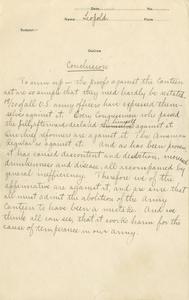 Date
Name Leopold
Form
Subject
Outline
Conclusion
To sum up — the proofs against the Canteen
act are so ample that they need hardly be restated.
% of all U.S. army officers have expressed them-
selves against it. Every Congressman who passed
the bill, afterward declared himself against it.
Our chief reformers are against it. The Common
Regular is against it. And as has been proven,
it has caused discontent and desertion, increased
drunkenness and disease, all accompanied by
general inefficiency. Therefore we of the
affirmative are against it, and are sure that
all must admit the abolition of the Army
Canteen to have been a mistake. And we
think all can see that it works harm for the
cause of temperance in our army.